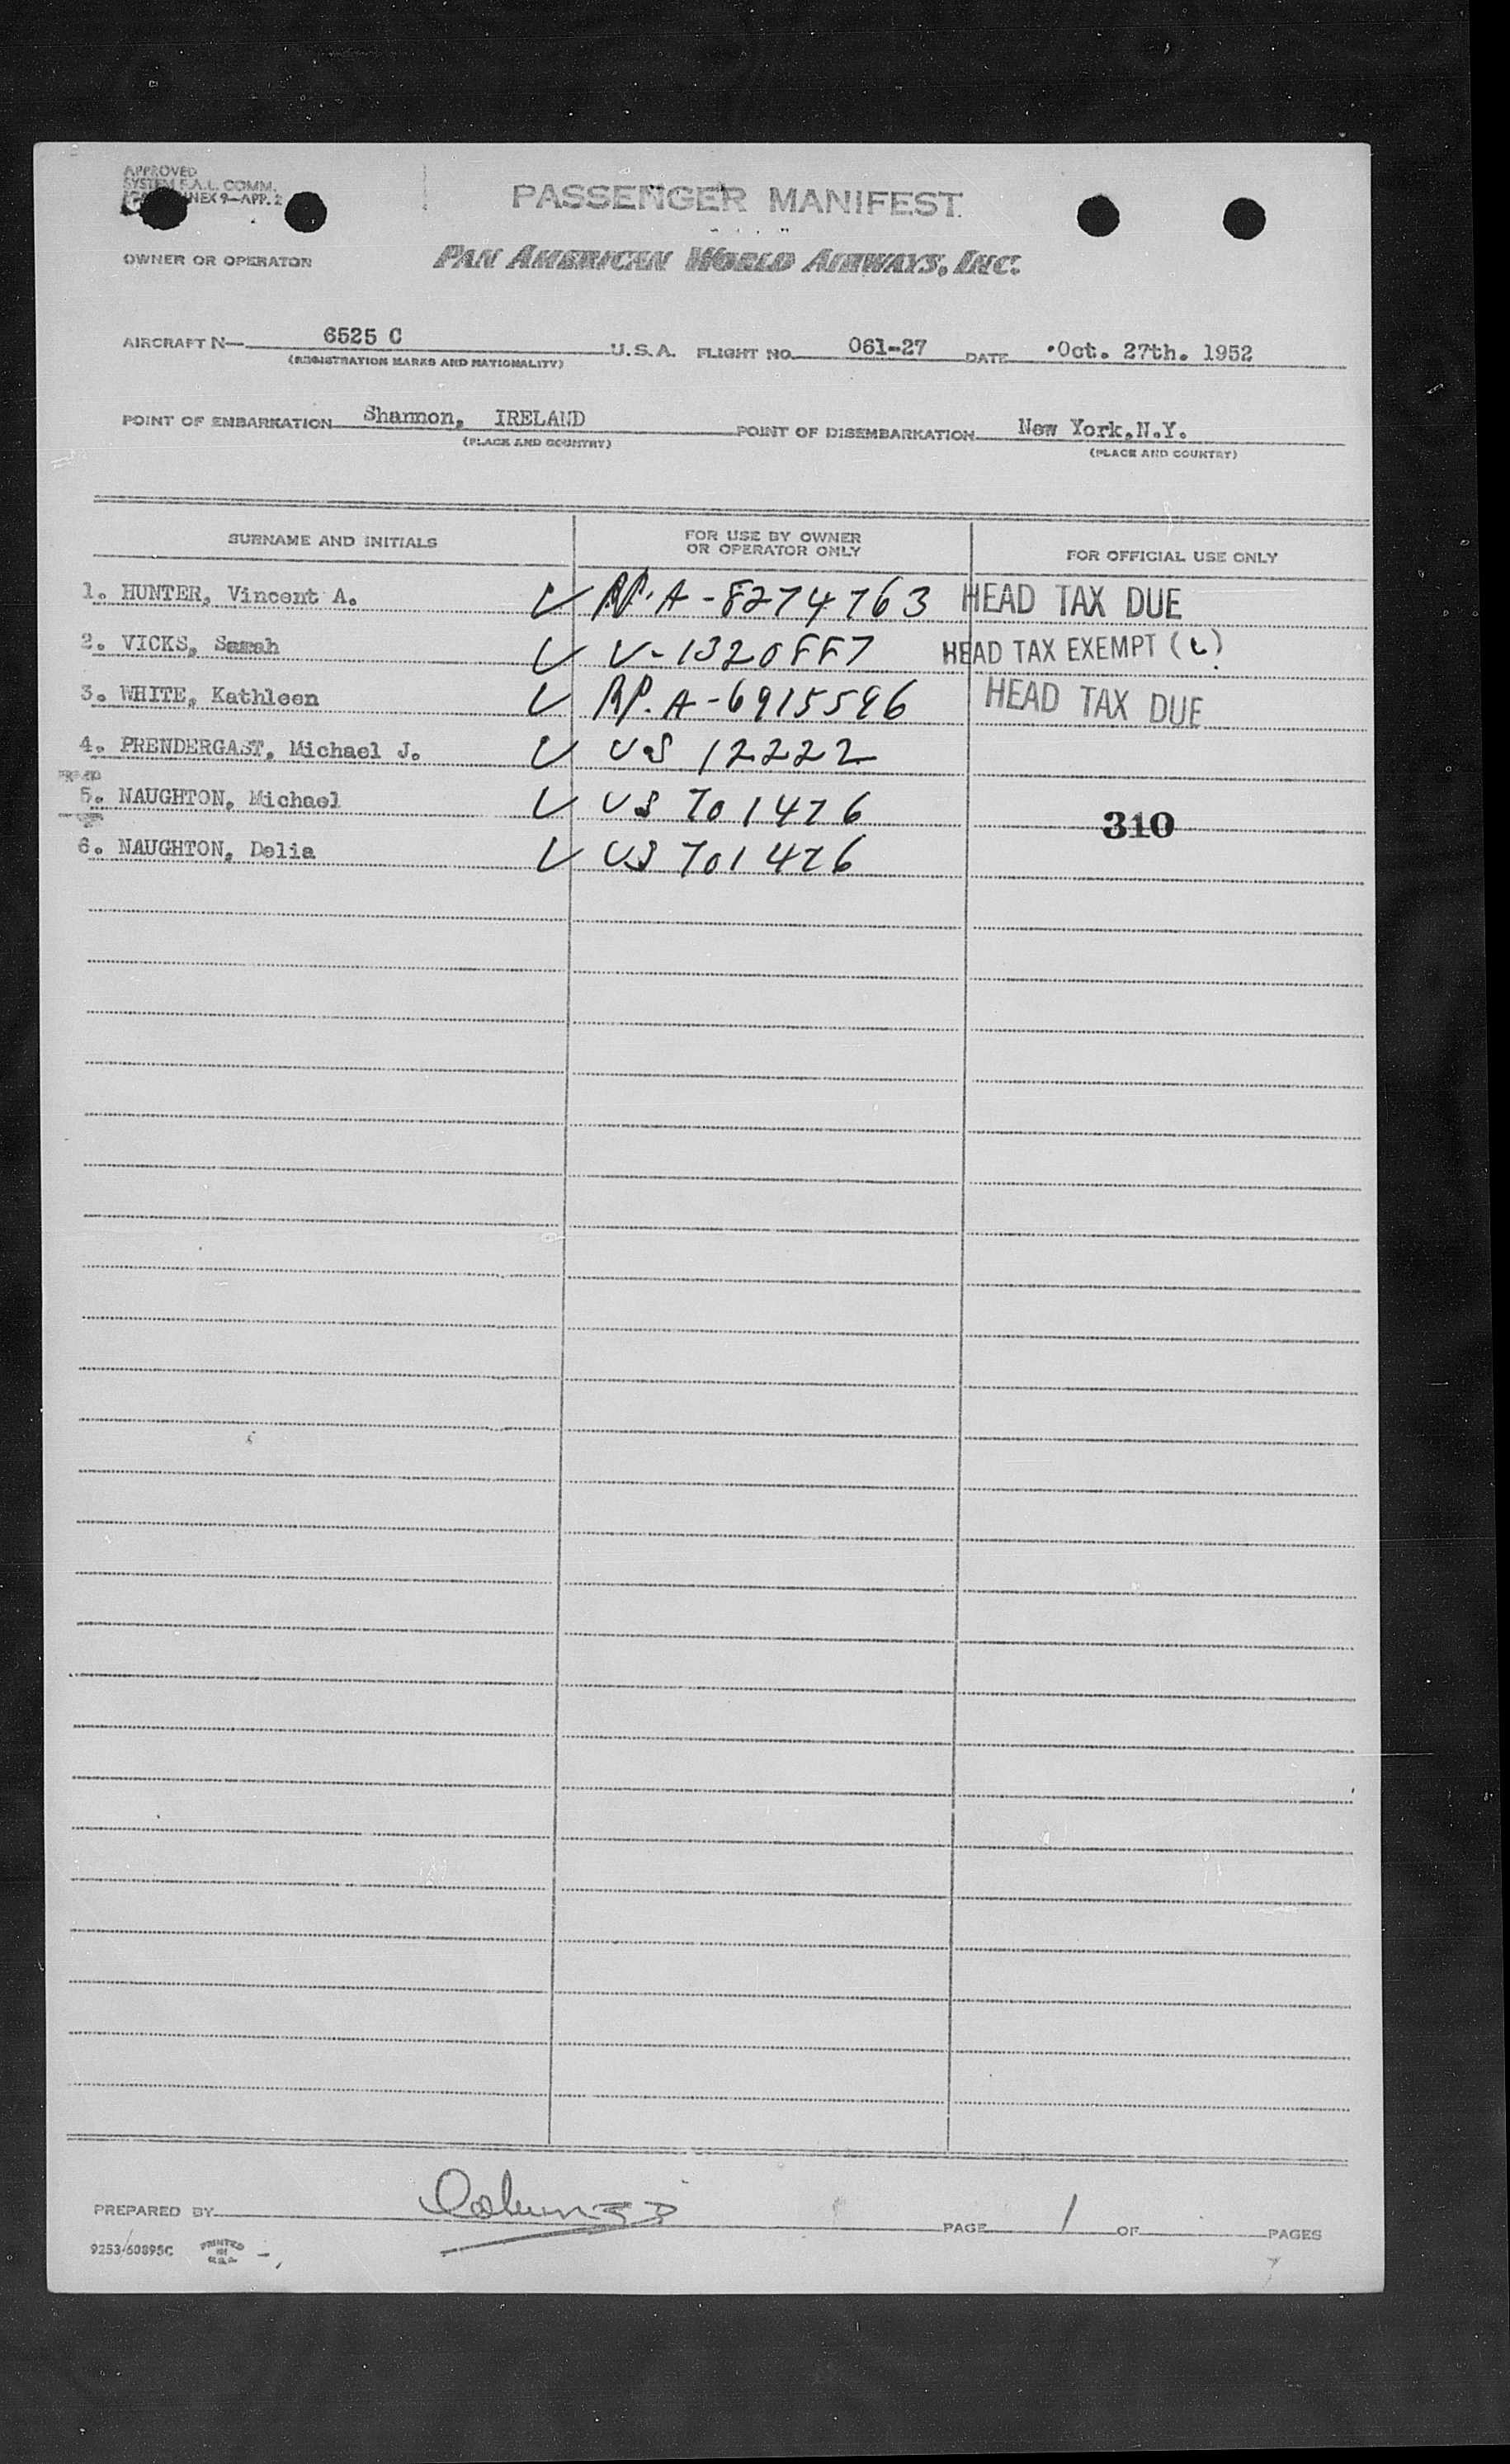 APPROVED
SYSTEM F.A.L. COMM.
ANNEX 9—APP. 2
PASSENGER MANIFEST
OWNER OR OPERATOR PAN AMERICAN WORLD AIRWAYS, INC.
AIRCRAFT N— 6525 C U.S.A. FLIGHT NO. 061-27 DATE Oct. 27th. 1952
(REGISTRATION MARKS AND NATIONALITY)
POINT OF EMBARKATION Shannon, IRELAND POINT OF DISEMBARKATION New York,N.Y.
(PLACE AND COUNTRY) (PLACE AND COUNTRY)
SURNAME AND INITIALS FOR USE BY OWNER OR OPERATOR ONLY FOR OFFICIAL USE ONLY
1. HUNTER, Vincent A. ✓ RP. A-8274763 HEAD TAX DUE
2. VICKS, Sarah ✓ V-1320887 HEAD TAX EXEMPT (L)
3. WHITE, Kathleen ✓ RP. A-6915596 HEAD TAX DUE
4. PRENDERGAST, Michael J. ✓ US 12222
5. NAUGHTON, Michael ✓ US 701476 310
6. NAUGHTON, Delia ✓ US 701476
PREPARED BY PAGE 1 OF PAGES
9253/60895C PRINTED IN U.S.A.